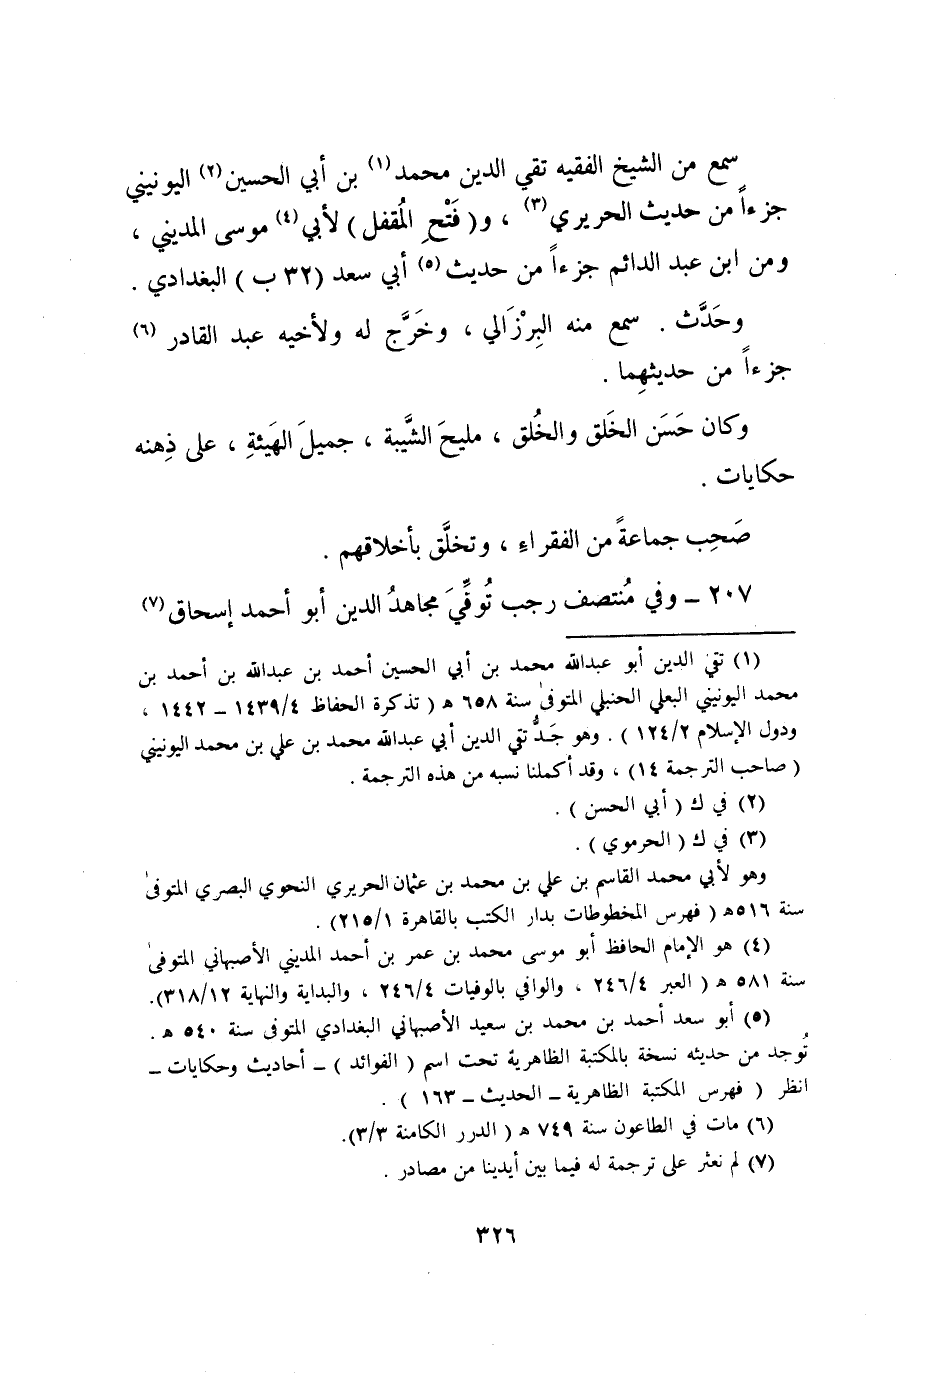 سمع من الشيخ الفقيه تقي الدين محمد(١) بن أبي الحسين(٢) اليونيني
جزءاً من حديث الحريري(٣) ، و( فَتْحِ المُقفل ) لأبي(٤) موسى المديني ،
ومن ابن عبد الدائم جزءاً من حديث(٥) أبي سعد (٣٢ ب ) البغدادي .
وحَدَّث . سمع منه البِرْزَالي ، وخَرَّج له ولأخيه عبد القادر (٦)
جزءاً من حديثهِما .
وكان حَسَن الخَلق والخُلق ، مليحَ الشَّيبة ، جميلَ الهَيئةِ ، على ذِهنه
حكايات .
صَحِب جماعةً من الفقراءِ ، وتخلَّق بأخلاقهم .
٢٠٧ ـ وفي مُنتصف رجب تُوفِّيَ مجاهدُ الدين أبو أحمد إسحاق(٧)
(١) تقي الدين أبو عبدالله محمد بن أبي الحسين أحمد بن عبدالله بن أحمد بن
محمد اليونيني البعلي الحنبلي المتوفىٰ سنة ٦٥٨ ه ( تذكرة الحفاظ ١٤٣٩/٤ ـ ١٤٤٢ ،
ودول الإسلام ١٢٤/٢ ) . وهو جَدُّ تقي الدين أبي عبدالله محمد بن علي بن محمد اليونيني
( صاحب الترجمة ١٤) ، وقد أكملنا نسبه من هذه الترجمة .
(٢) في ك ( أبي الحسن ) .
(٣) في ك ( الحرموي ) .
وهو لأبي محمد القاسم بن علي بن محمد بن عثمان الحريري النحوي البصري المتوفىٰ
سنة ٥١٦ه ( فهرس المخطوطات بدار الكتب بالقاهرة ٢١٥/١) .
(٤) هو الإمام الحافظ أبو موسى محمد بن عمر بن أحمد المديني الأصبهاني المتوفىٰ
سنة ٥٨١ ه ( العبر ٢٤٦/٤ ، والوافي بالوفيات ٢٤٦/٤ ، والبداية والنهاية ٣١٨/١٢).
(٥) أبو سعد أحمد بن محمد بن سعيد الأصبهاني البغدادي المتوفى سنة ٥٤٠ ه .
تُوجد من حديثه نسخة بالمكتبة الظاهرية تحت اسم ( الفوائد ) ـ أحاديث وحكايات ـ
انظر ( فهرس المكتبة الظاهرية ـ الحديث ـ ١٦٣ ) .
(٦) مات في الطاعون سنة ٧٤٩ ه ( الدرر الكامنة ٣/٣).
(٧) لم نعثر على ترجمة له فيما بين أيدينا من مصادر .
٣٢٦